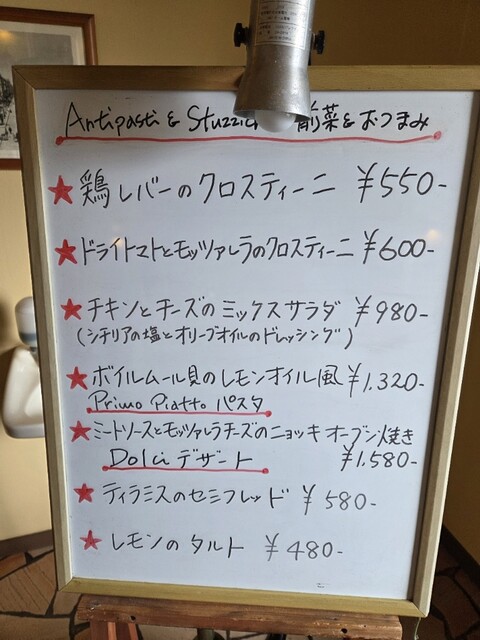 Antipasti & Stuzzic 前菜&おつまみ
★鶏レバーのクロスティーニ ¥550-
★ドライトマトとモッツァレラのクロスティーニ ¥600-
★チキンとチーズのミックスサラダ ¥980-
(シチリアの塩とオリーブオイルのドレッシング)
★ボイルムール貝のレモンオイル風 ¥1.320-
Primo Piatto パスタ
★ミートソースとモッツァレラチーズのニョッキ オーブン焼き
¥1.580-
Dolci デザート
★ティラミスのセミフレッド ¥580-
★レモンのタルト ¥480-